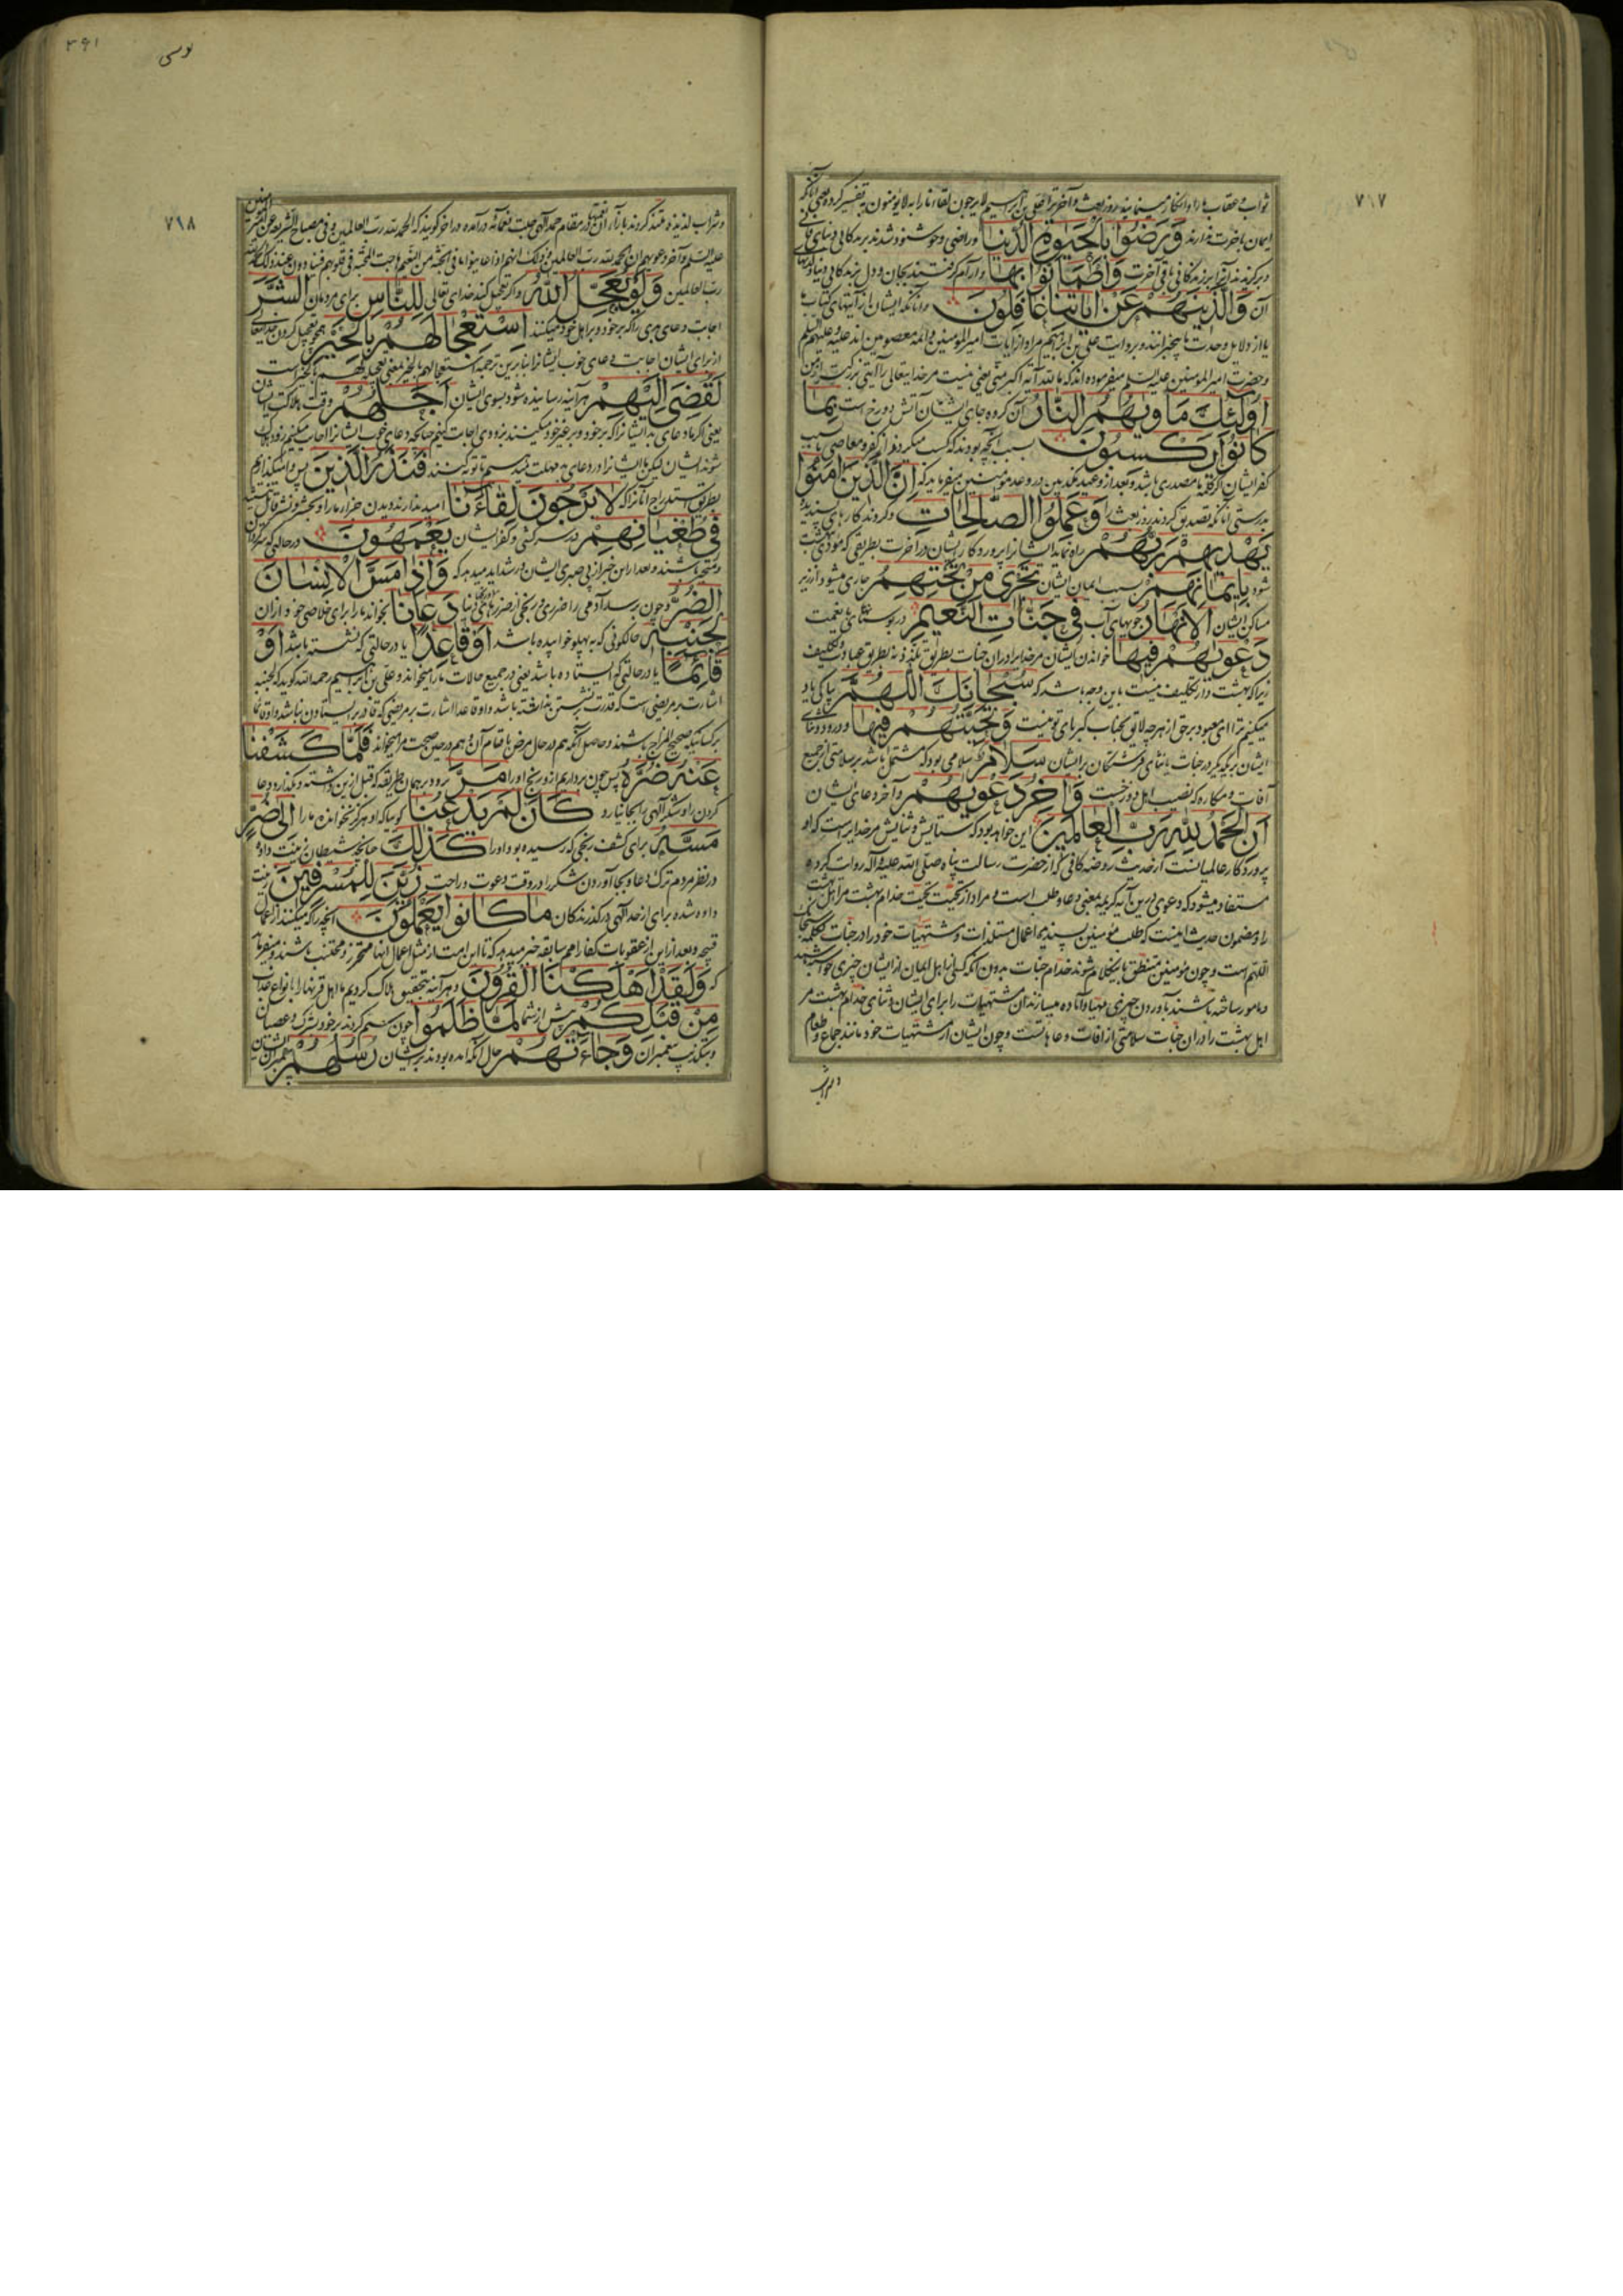 ۷۱۷
ایمان باخرت ندارند وَرَضُوا بِالْحَیٰوةِ الدُّنْیَا وراضی وخوشنود شدند بزندگانی دنیای فانی
وبرگزیدند آنرا بر زندگانی باقی آخرت وَاطْمَأَنُّوا بِهَا وآرام گرفتند بجان و دل بزندگانی دنیا
آن وَالَّذِینَ هُمْ عَنْ اٰیَاتِنَا غَافِلُونَ وآنانکه ایشان از آیتهای کتاب ما
یا از دلایل وحدت ما بیخبرانند وبروایت علی بن ابراهیم مراد از ایات امیرالمؤمنین وائمه معصومین اند علیه وعلیهم السلم
وحضرت امیرالمؤمنین علیه السلم میفرموده اند که ما لله آیة اکبر منی یعنی نیست مر خدایتعالی را آیتی بزرگتر از من
اُولٰئِكَ مَأْوٰیهُمُ النَّارُ آن گروه جای ایشان آتش دوزخ است بِمَا
كَانُوا یَكْسِبُونَ بسبب آنچه بودند که کسب میکردند از کفر ومعاصی یا بسبب
کفر ایشان اگر کلمه ما مصدری باشد وبعد از وعید مکذبین در وعد مؤمنین میفرماید که اِنَّ الَّذِینَ اٰمَنُوا
بدرستی آنانکه تصدیق کردند روز بعث را وَعَمِلُوا الصَّالِحَاتِ وکردند کارهای پسندیده
یَهْدِیهِمْ رَبُّهُمْ راه نماید ایشانرا پروردگار ایشان در آخرت بطریقی که مؤدی بجنت
شود بِاِیمَانِهِمْ بسبب ایمان ایشان تَجْرِی مِنْ تَحْتِهِمُ جاری میشود از زیر
مساکن ایشان الْاَنْهَارُ جویهای آب فِی جَنَّاتِ النَّعِیمِ در بوستانهای با نعمت
دَعْوٰیهُمْ فِیهَا خواندن ایشان مر خدایرا در ان جنات بطریق تلذذ نه بطریق عبادت وتکلیف
زیرا که بهشت دار تکلیف نیست باین وجه باشد که سُبْحَانَكَ اللّٰهُمَّ بپاکی یاد
میکنیم ترا ای معبود بر حق از هر چه لایق بجناب کبریای تو نیست وَتَحِیَّتُهُمْ فِیهَا ودرود وثنای
ایشان بر یکدیگر در جنات یا ثنای فرشتگان بر ایشان سَلَامٌ سلامی بود که مشتمل باشد بر سلامتی از جمیع
آفات ومکاره که نصیب اهل دوزخست وَاٰخِرُ دَعْوٰیهُمْ وآخر دعای ایشان
اَنِ الْحَمْدُ لِلّٰهِ رَبِّ الْعَالَمِینَ این خواهد بود که ستایش وثنایش مر خدایراست که او
پروردگار عالمیانست از حدیث روضه کافی که از حضرت رسالت پناه صلی الله علیه وآله روایت کرده
مستفاد میشود که دعوی درین آیه کریمه بمعنی دعا وطلب است ومراد از تحیت تحیت خدام بهشت مر اهل بهشت
را ومضمون حدیث اینست که طلب مؤمنین پسندیده اعمال مستلذات ومشتهیات خود را در جنات بکلمه سبحانک
اللهم است وچون مؤمنین متنطق باین کلام شوند خدام جنات بدون آنکه کسی از اهل ایمان از ایشان چیزی خواسته باشد
ومامور ساخته باشند باوردن چیزی مهیا وآماده میسازند آن مشتهیات را برای ایشان وثنای خدام بهشت مر
اهل بهشت را در ان جنات سلامتی از افات وعاهاتست وچون ایشان از مشتهیات خود مانند جماع وطعام
۳۹۱
۷۱۸
رب العالمین وَلَوْ یُعَجِّلُ اللّٰهُ واگر تعجیل کند خدای تعالی لِلنَّاسِ برای مردمان الشَّرَّ
اجابت دعای بدی را که بر خود وبر اهل خود میکنند اسْتِعْجَالَهُمْ بِالْخَیْرِ همچو تعجیل کردن
از برای ایشان اجابت دعای خوب ایشانرا
لَقُضِیَ اِلَیْهِمْ هر آینه رسانیده شود بسوی ایشان اَجَلُهُمْ وقت هلاکت ایشان
یعنی اگر ما دعای بد ایشانرا که بر خود وبر غیر خود میکنند بزودی اجابت کنیم چنانچه دعای خوب ایشانرا اجابت میکنیم زود هلاک
شوند ایشان لیکن ما ایشانرا در دعای بد مهلت میدهیم تا توبه کنند فَنَذَرُ الَّذِینَ پس وامیگذاریم
بطریق استدراج آنانرا که لَا یَرْجُونَ لِقَاءَنَا امید ندارند دیدن جزای ما را
فِی طُغْیَانِهِمْ در سرکشی وکفر ایشان یَعْمَهُونَ در حالتی که سرگردان
ومتحیر باشند وبعد ازین خبر از بی صبری ایشان در شداید میدهد که وَاِذَا مَسَّ الْاِنْسَانَ
الضُّرُّ وچون برسد آدمی را ضرری ورنجی از ضررهای دنیا دَعَانَا بخواند ما را برای خلاصی خود از ان
لِجَنْبِهِ حالکونی که به پهلو خوابیده باشد اَوْ قَاعِدًا یا در حالتی که نشسته باشد اَوْ
قَائِمًا یا در حالتی که ایستاده باشد یعنی در جمیع حالات ما را میخواند وعلی بن ابراهیم رحمه الله گوید که لجنبه
اشارت بمریضی است که قدرت نشستن نداشته باشد واو قاعدا اشارت بر مریضی که قادر بر ایستادن نباشد واو قائما
بر کسانیکه صحیح المزاج باشند وحاصل آنکه هم در حال مرض باقسام آن وهم در حین صحت مرا میخواند فَلَمَّا كَشَفْنَا
عَنْهُ ضُرَّهُ پس چون برداریم از و رنج او را مَرَّ رود بر همان طریقه که قبل ازین داشته وبگذارد دعا
کردن را وشکر الهی بجا نیارد كَاَنْ لَمْ یَدْعُنَا گویا که او هرگز نخوانده ما را اِلٰی ضُرٍّ
مَسَّهُ برای کشف رنجی که رسیده بود او را كَذٰلِكَ چنانچه شیطان زینت داده
در نظر مردم ترک دعا وبجا آوردن شکر را در وقت دعوت وراحت زُیِّنَ لِلْمُسْرِفِینَ زینت
داده شده برای از حد الهی درگذرندگان مَا كَانُوا یَعْمَلُونَ آنچه را که میکنند از اعمال
قبیحه وبعد ازاین از عقوبات کفار امم سابقه خبر میدهد که تا این امت از مثل اعمال آنها محترز ومجتنب باشند ومیفرماید
که وَلَقَدْ اَهْلَكْنَا الْقُرُونَ وهر آینه بتحقیق هلاک کردیم ما اهل قرنها را بانواع عذاب
مِنْ قَبْلِكُمْ پیش از شما لَمَّا ظَلَمُوا چون ستم کردند بر خود بشرک وعصیان
وبتکذیب پیغمبران وَجَاءَتْهُمْ حال آنکه آمده بودند بر ایشان رُسُلُهُمْ پیغمبران ایشان